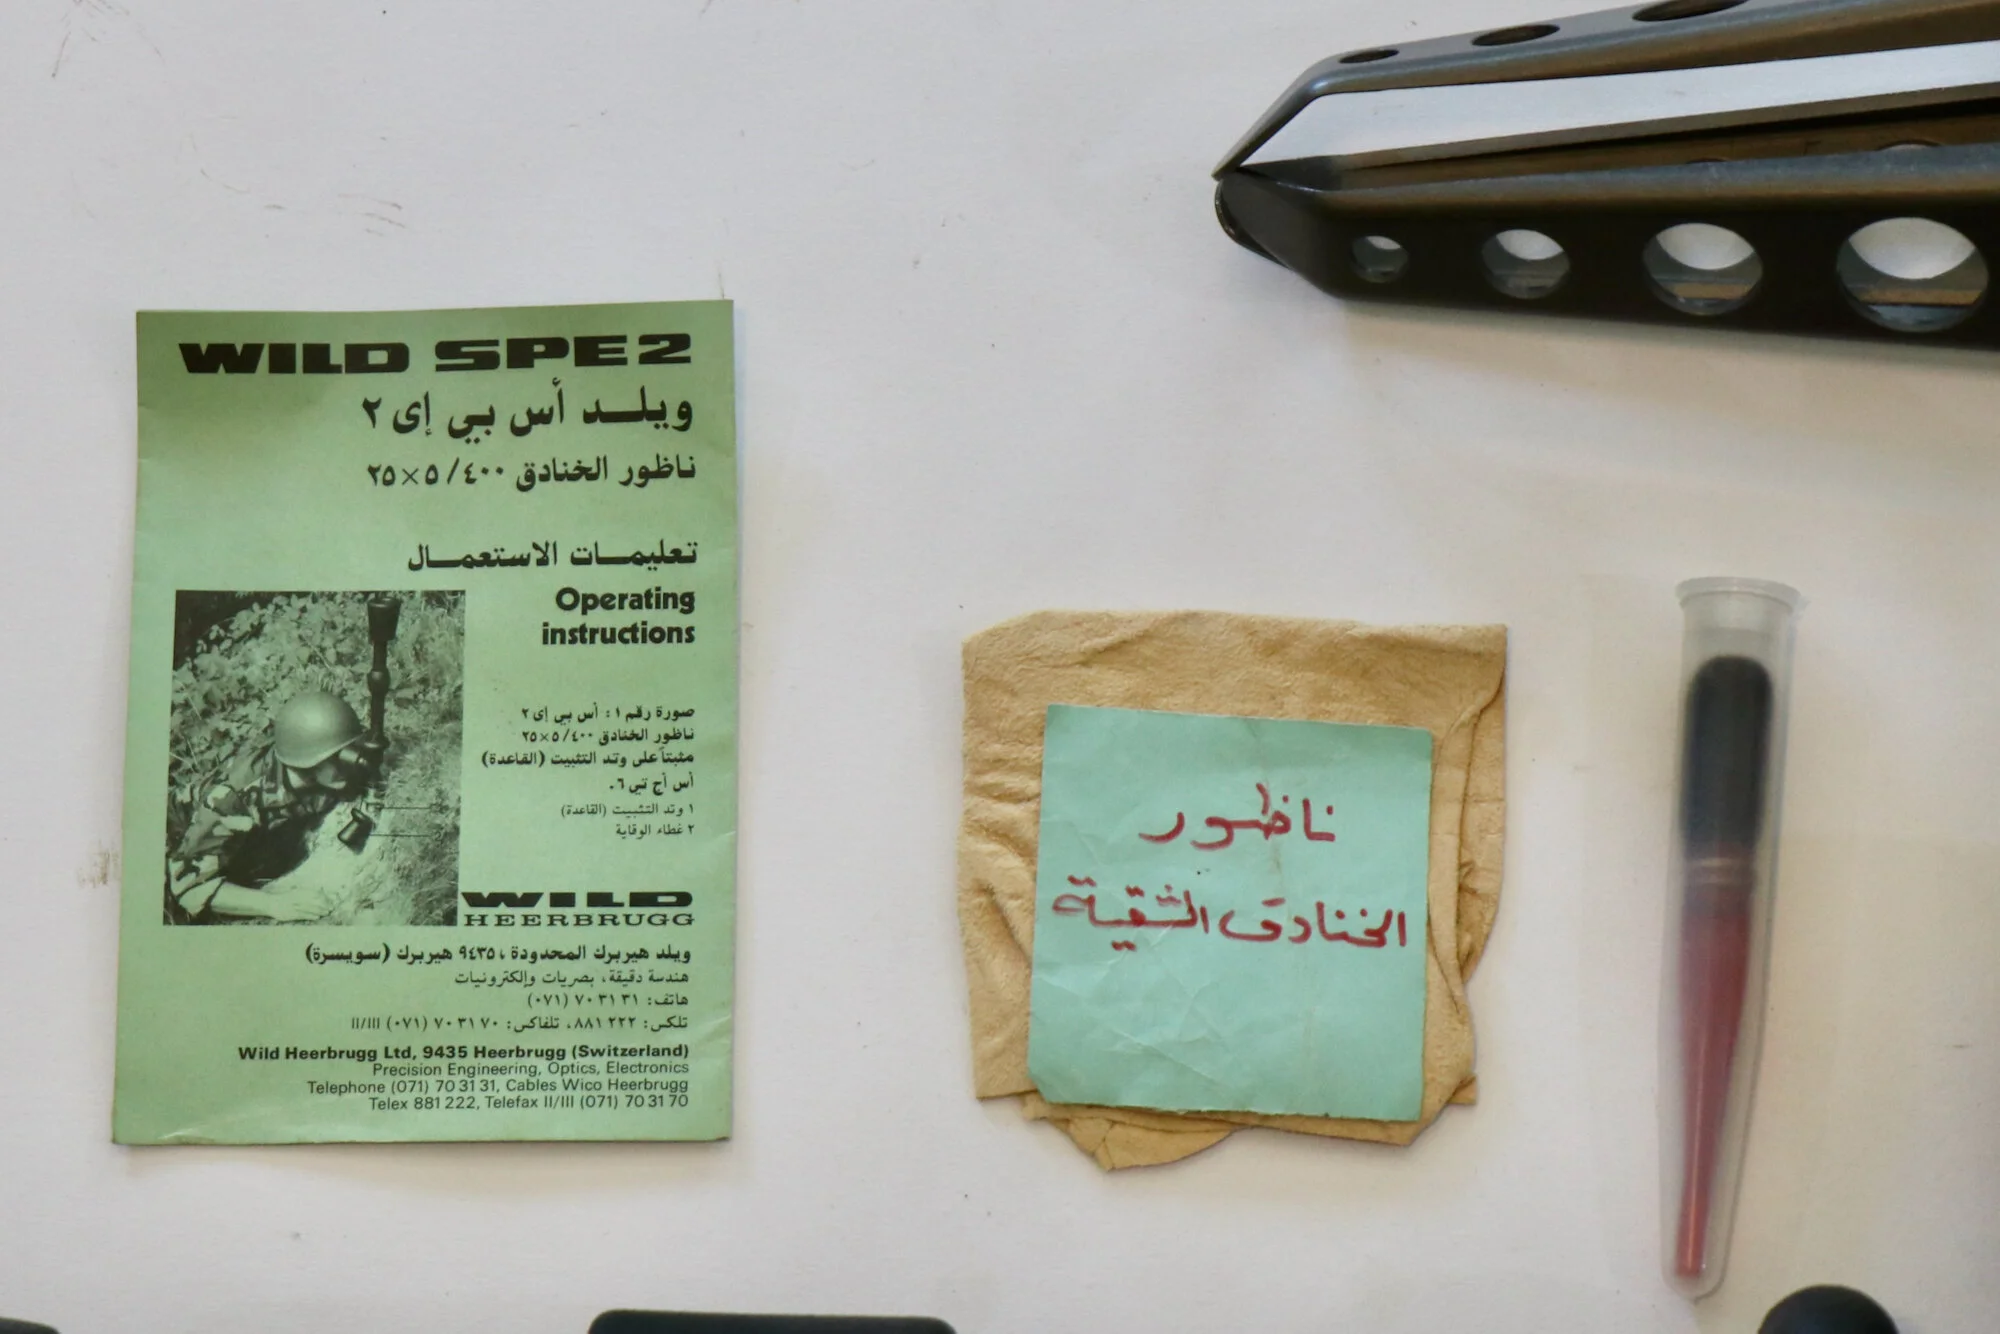 WILD SPE2
ويلد أس بي إى ٢
ناظور الخنادق ٤٠٠/٥×٢٥
تعليمات الاستعمال
Operating
instructions
صورة رقم ١: أس بي إى ٢
ناظور الخنادق ٤٠٠/٥×٢٥
مثبتاً على وتد التثبيت (القاعدة)
أس أج تي ٦.
١ وتد التثبيت (القاعدة)
٢ غطاء الوقاية
WILD
HEERBRUGG
ويلد هيربرك المحدودة، ٩٤٣٥ هيربرك (سويسرة)
هندسة دقيقة، بصريات وإلكترونيات
هاتف: ٣١ ٣١ ٧٠ (٠٧١)
تلكس: ٢٢٢ ٨٨١، تلفاكس: ٧٠ ٣١ ٧٠ (٠٧١) II/III
Wild Heerbrugg Ltd, 9435 Heerbrugg (Switzerland)
Precision Engineering, Optics, Electronics
Telephone (071) 70 31 31, Cables Wico Heerbrugg
Telex 881 222, Telefax II/III (071) 70 31 70
ناظور
الخنادق الشقية